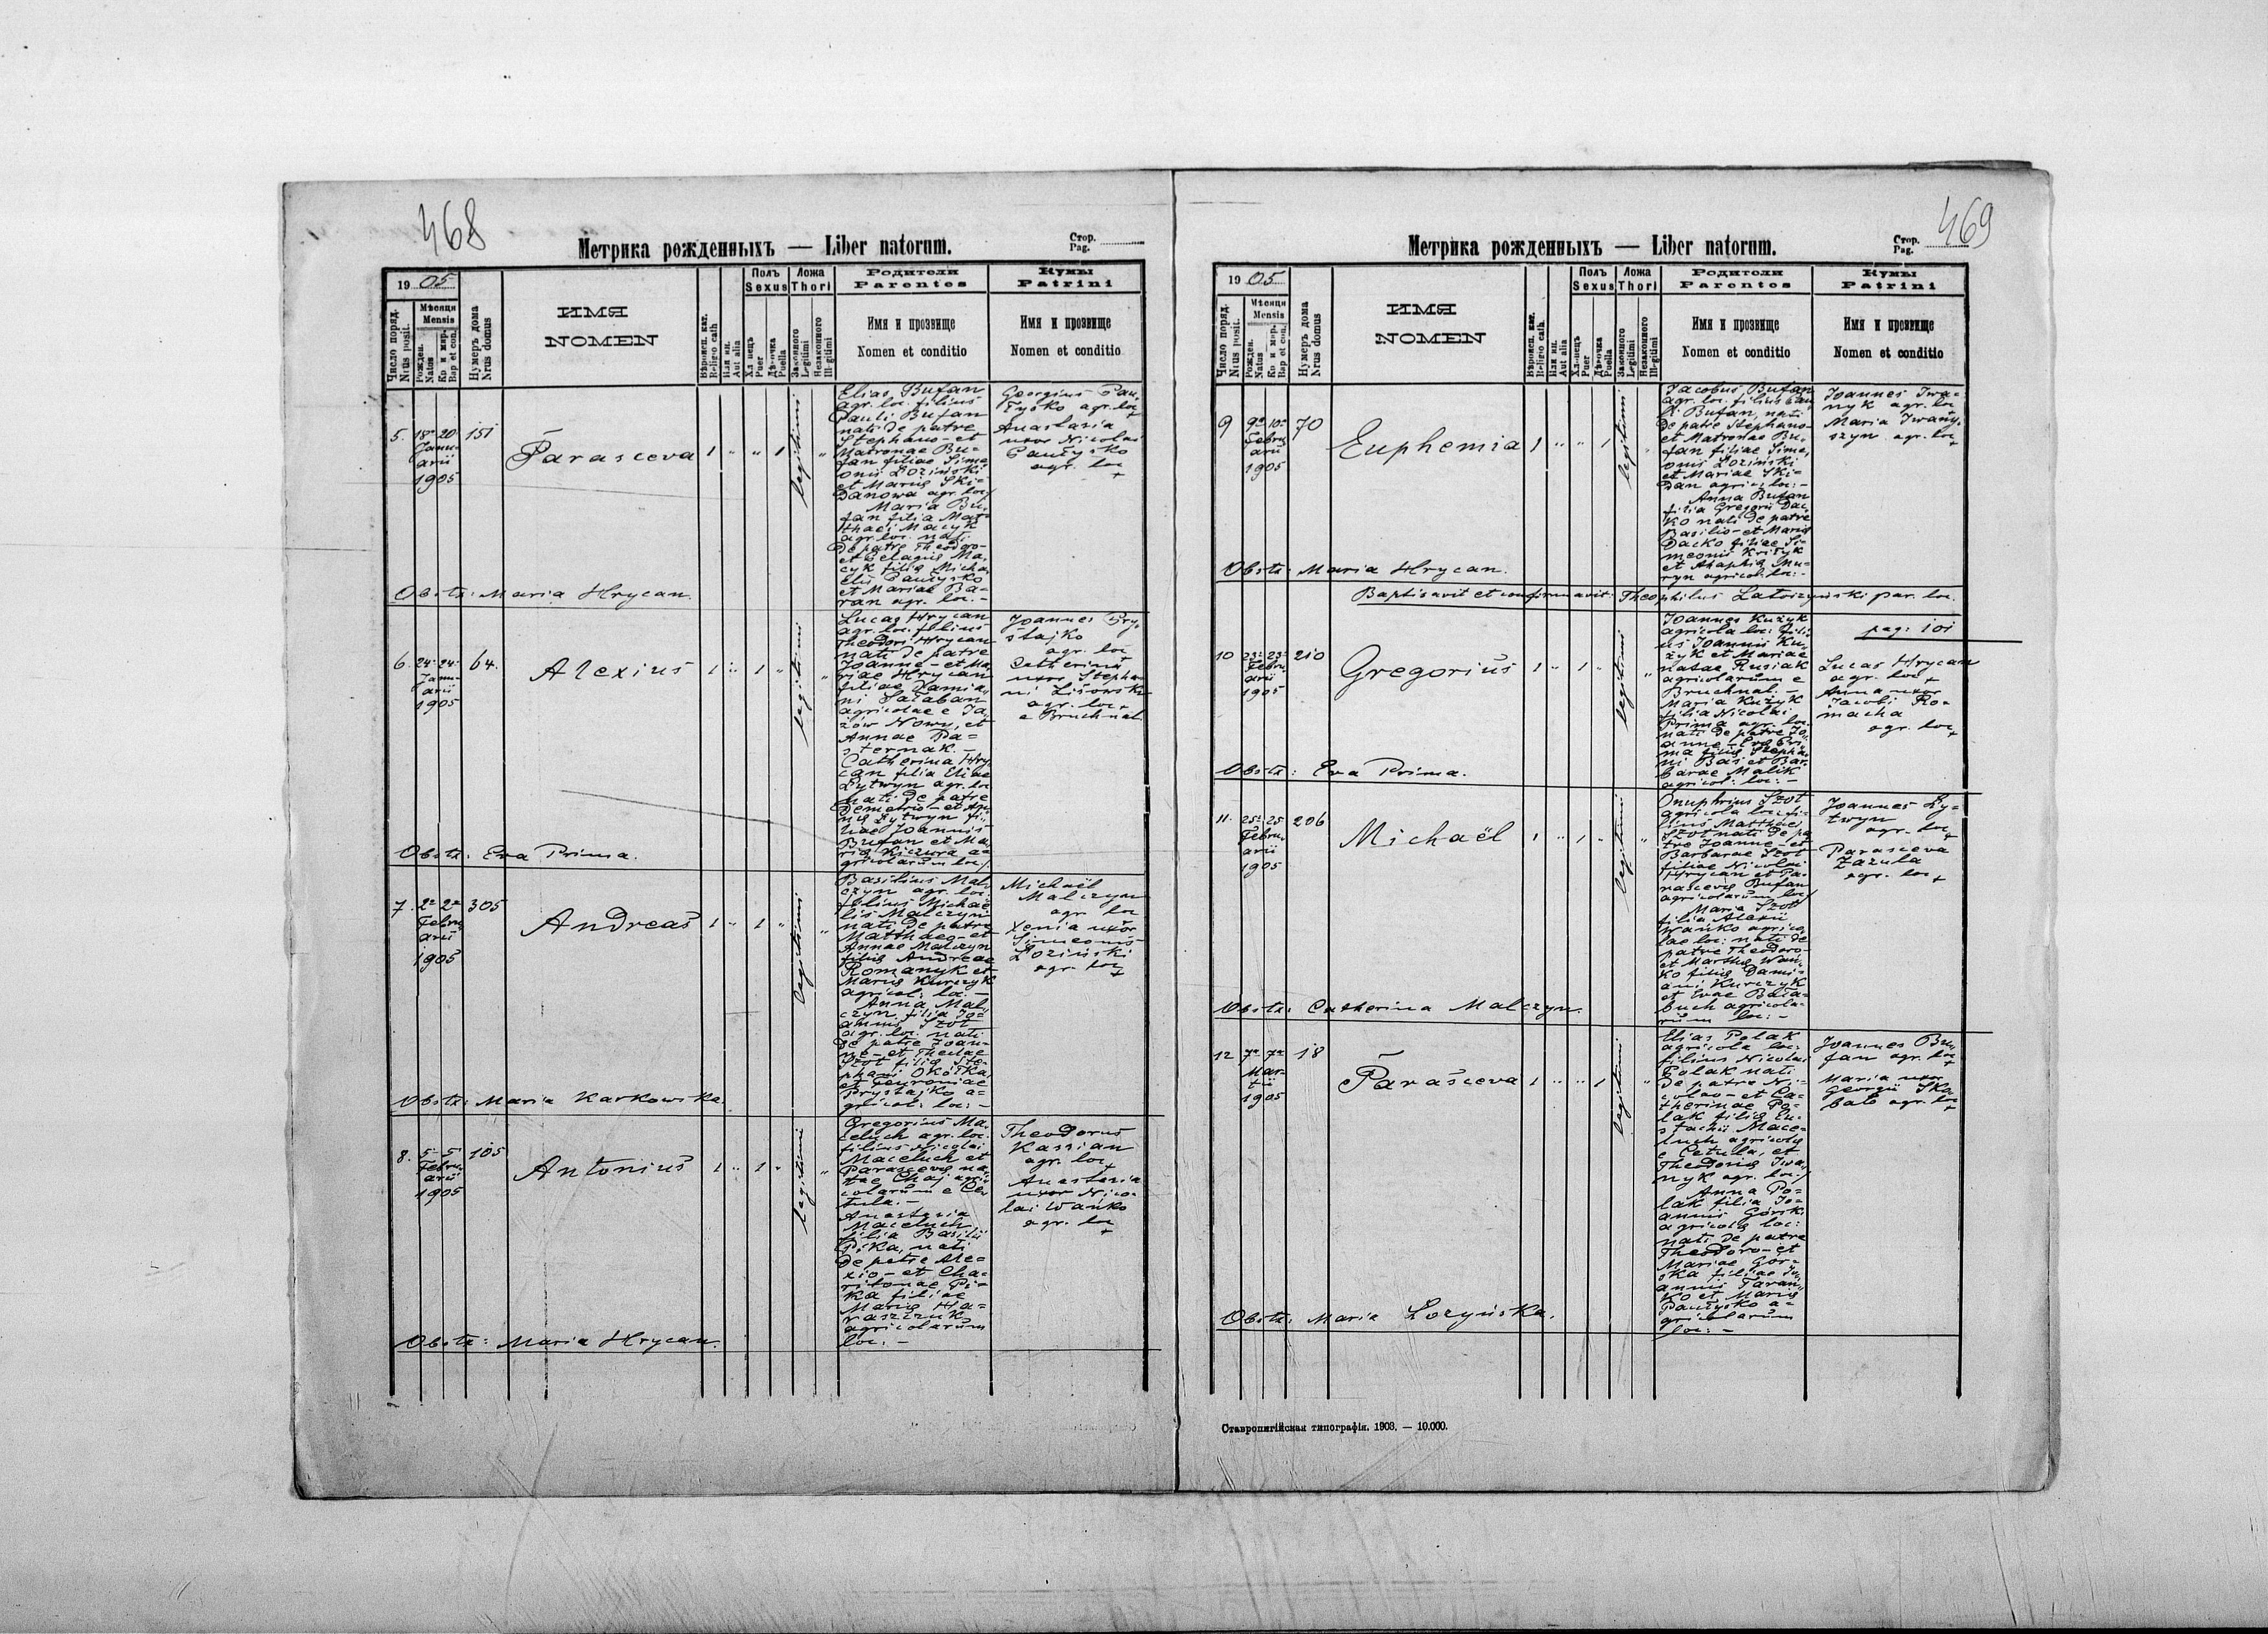 468
Метрика рожденныхъ — Liber natorum.
Стор.
Pag.
19 05
Число поряд.
Nrus posit.
Мѣсяця
Mensis
Рожден.
Natus
Кр и мир.
Bap et con.
Нумеръ дома
Nrus domus
ИМЯ
NOMEN
Religio cath
Или ин.
Aut alia
Полъ
Sexus
Puer
Дѣвочка
Puella
Ложа
Thori
Законного
Legitimi
Незаконного
Illegitimi
Родители
Parentes
Имя и прозвище
Nomen et conditio
Кумы
Patrini
Имя и прозвище
Nomen et conditio
5. 18a 20
Janu-
arii
1905
151
Parasceva
1 " " 1 legitimi "
Elias Bufan
agr. loc. filius
Pauli Bufan
nati de patre
Stephano - et
Matronae Bu-
fan filiae Sime
onis Łoziński
et Mariæ Ski-
danowa agr. loc/
Maria Bu-
fan filia Mat-
thaei Macyk
agr. loc. nati
de patre Theodoro-
et Pelagiæ Ma-
cyk filiæ Micha-
elis Pańtysko
et Mariae Ba-
ran agr. loc. -
Georgius Pań-
tysko agr. loc
Anastasia
uxor Nicolai
Pańtysko
agr. loc
+
Obstx: Maria Hrycan.
6. 24a 24a
Janu-
arii
1905
64.
Alexius
1 " 1 " legitimi "
Lucas Hrycan
agr. loc. filius
Theodori Hrycan
nati de patre
Joanne - et Ma-
riae Hrycan
filiae Damia-
ni Sałaban
agricolae e Ja-
zów Nowy, et
Annae Pa-
sternak. -
Catherina Hry-
can filia Eliae
Łytwyn agr. loc
nati de patre
Demetrio - et An-
næ Łytwyn fi-
liae Joannis
Bufan et Ma-
riæ Kiczura a-
gricolarum loc/
Joannes Pry-
stajko
agr. loc
Catherina
uxor Stepha-
ni
agr. loc +
e Bruchnal.
Obstx: Eva Prima.
7. 2a 2a
Febru-
arii
1905
305
Andreas
1 " 1 " legitimi "
Basilius Mal-
czyn agr. loc.
filius Michaë
lis Malczyn
nati de patre
Matthaeo - et
Annae Malczyn
filiæ Andreae
Romanyk et
Mariæ Kurczyk
agricol: loc. -
Anna Mal-
czyn filia Jo-
annis Szot
agr. loc. nati
de patre Joan-
ne - et Theclae
Szot filiæ Ste-
phani Okólka
et Feuroniae
Prystajko a-
gricol: loc: -
Michaël
Malczyn
agr loc
Xenia uxor
Simeonis
Łoziński
agr. loc
+
Obstx: Maria Karkowska.
8. 5- 5-
Febru-
arii
1905
105
Antonius
1 " 1 " legitimi "
Gregorius Ma-
celuch agr. loc.
filius Nicolai
Maceluch et
Parascevæ na-
tae Chaj agri-
colarum e Ce-
tula. -
Anastasia
Maceluch
filia Basilii
Pika, nati
de patre Ale-
xio - et Cha-
ritonae Pi-
ka filiae
Mariæ Ha-
raszczuk
agricolarum
loc: -
Theodorus
Kassian
agr. loc
+
Anastasia
uxor Nico-
lai Wańko
agr. loc
+
Obstx: Maria Hrycan.
469
Метрика рожденныхъ — Liber natorum.
Стор.
Pag.
19 05
Число поряд.
Nrus posit.
Мѣсяця
Mensis
Рожден.
Natus
Кр и мир.
Bap et con.
Нумеръ дома
Nrus domus
ИМЯ
NOMEN
Religio cath.
Или ин.
Aut alia
Полъ
Sexus
Хл-пецъ
Puer
Дѣвочка
Puella
Ложа
Thori
Законного
Legitimi
Незаконного
Illegitimi
Родители
Parentes
Имя и прозвище
Nomen et conditio
Кумы
Patrini
Имя и прозвище
Nomen et conditio
9 9a 10a
Febru-
arii
1905
70
Euphemia
1 " " 1 legitimi "
Jacobus Bufan
agr. loc. filius Pau
li Bufan, nati
de patre Stephano-
et Matronae Bu-
fan filiae Sime-
onis Łoziński
et Mariae Ski-
dan agric: loc: -
Anna Bufan
filia Gregorii Dac-
ko nati de patre
Basilio - et Mariæ
Dacko filiae Si-
meonis Krityk
et Ahaphiæ Mu-
ryn agricol. loc: -
Joannes Iwa-
nyk agr. loc
Maria Iwany-
szyn agr. loc
+
Obstx: Maria Hrycan.
Baptisavit et confirmavit: Theophilus Latoszyński par. loc.
pag: 101
10 23a 23a
Febru-
arii
1905
210
Gregorius
1 " 1 " legitimi "
Joannes Kużyk
agricola loc: fili-
us Joannis Ku-
żyk et Mariae
natae Rusiak
agricolarum e
Bruchnal. -
Maria Kużyk
filia Nicolai
Prima agr. loc.
nati de patre Jo-
anne - Pri-
ma filiæ Stepha-
ni Bas et Bar-
barae Malik
agricol: loc: -
Lucas Hrycan
agr. loc+
Anna uxor
Jacobi Ro-
macha
agr. loc
+
Obstx: Eva Prima.
11. 25a 25
Febru-
arii
1905
206
Michaël
1 " 1 " legitimi "
Onuphrius Szot
agricola loc. fi-
lius Matthaei
Szot nati de pa
tre Joanne - et
Barbarae Szot
filiae Nicolai
Hrycan et Pa-
rascevæ Bufan
agricolarum loc/
Maria Szot
filia Alexii
Wańko agrico
lae loc: nati de
patre Theodoro -
et Marthæ Wań-
ko filiæ Dami-
ani Kurczyk
et Evae Bała-
buch agricola-
rum loc: -
Joannes Ły-
twyn
agr. loc
+
Parasceva
Zazula
agr. loc +
Obstx: Catherina Malczyn.
12 7a 7a
Mar-
tii
1905
18
Parasceva
1 " " 1 legitimi "
Elias Polak
agricola loc:
filius Nicolai
Polak nati
de patre Ni-
colao - et Ca-
therinae Po-
lak filiæ Eu-
stachii Mace-
luch agricolæ
e Cetula, et
Theodoriæ Iwa-
nyk agr. loc./
Anna Po-
lak filia Jo-
annis Górsk
agricolæ loc:
nati de patre
Theodoro - et
Mariae Gór-
ska filiae Jo-
annis Taran-
ko et Mariæ
Pańtysko a-
gricolarum
loc: -
Joannes Bu-
fan agr. loc
+
Maria uxor
Georgii Ska-
bało agr. loc
+
Obstx: Maria Łozyńska.
Ставропигійская типографія. 1903. — 10.000.